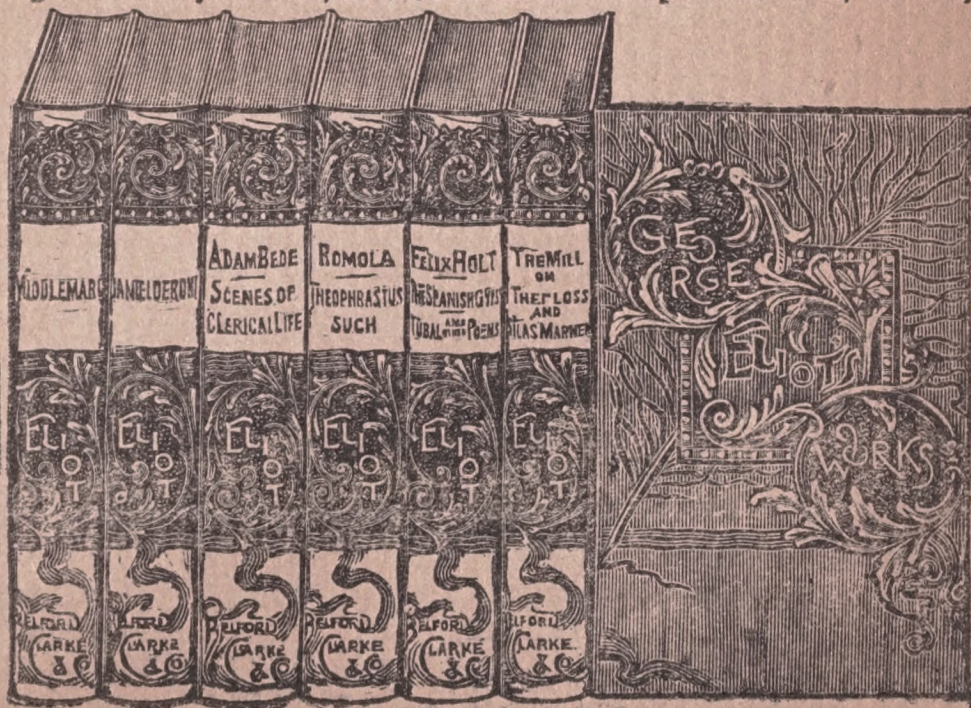 MIDDLEMARC
DANIELDERON
ADAM BEDE
SCENES OF
CLERICAL LIFE
ROMOLA
THEOPHRASTUS
SUCH
FELIX HOLT
THE SPANISH GYPS
TUBAL AND OTHER POEMS
THE MILL
ON
THE FLOSS
AND
SILAS MARNER
ELIOT
ELIOT
ELIOT
ELIOT
ELIOT
ELIOT
BELFORD
CLARKE
& CO
BELFORD
CLARKE
& CO
BELFORD
CLARKE
& CO
BELFORD
CLARKE
& CO
BELFORD
CLARKE
& CO
ELFORD
CLARKE
& CO
GEORGE
ELIOTS
WORKS